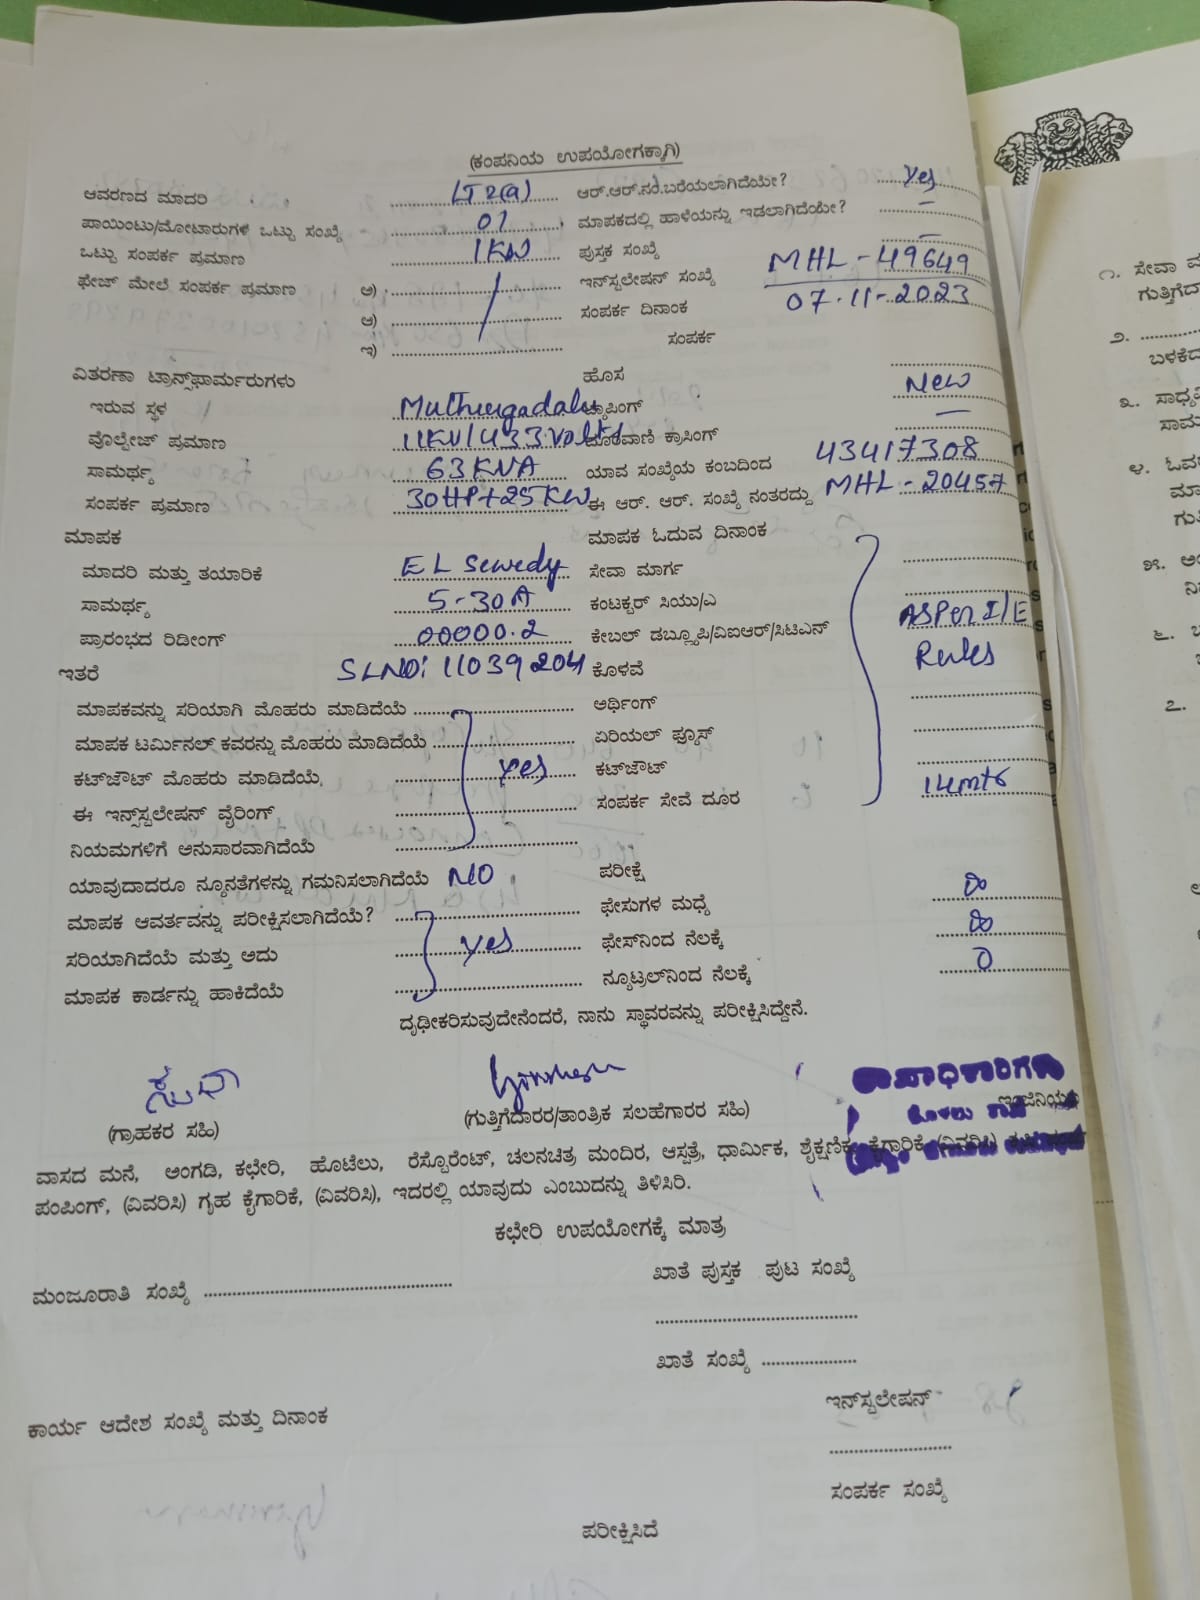 (ಕಂಪನಿಯ ಉಪಯೋಗಕ್ಕಾಗಿ)
ಆವರಣದ ಮಾದರಿ LT2(a) ಆರ್.ಆರ್.ನಂ.ಬರೆಯಲಾಗಿದೆಯೇ? Yes
ಪಾಯಿಂಟು/ಮೋಟಾರುಗಳ ಒಟ್ಟು ಸಂಖ್ಯೆ 01 ಮಾಪಕದಲ್ಲಿ ಹಾಳೆಯನ್ನು ಇಡಲಾಗಿದೆಯೇ? –
ಒಟ್ಟು ಸಂಪರ್ಕ ಪ್ರಮಾಣ 1KW ಪುಸ್ತಕ ಸಂಖ್ಯೆ –
ಫೇಜ್ ಮೇಲೆ ಸಂಪರ್ಕ ಪ್ರಮಾಣ ಅ) ಇನ್‌ಸ್ಟಲೇಷನ್ ಸಂಖ್ಯೆ MHL - 49649
ಆ) ಸಂಪರ್ಕ ದಿನಾಂಕ 07-11-2023
ಇ) ಸಂಪರ್ಕ
ವಿತರಣಾ ಟ್ರಾನ್ಸ್‌ಫಾರ್ಮರುಗಳು ಹೊಸ New
ಇರುವ ಸ್ಥಳ Muthurgadalu ಟ್ಯಾಪಿಂಗ್ –
ವೊಲ್ಟೇಜ್ ಪ್ರಮಾಣ 11KV/433 Volts ದೂರವಾಣಿ ಕ್ರಾಸಿಂಗ್
ಸಾಮರ್ಥ್ಯ 63KVA ಯಾವ ಸಂಖ್ಯೆಯ ಕಂಬದಿಂದ 43417308
ಸಂಪರ್ಕ ಪ್ರಮಾಣ 30HP+25KW ಈ ಆರ್. ಆರ್. ಸಂಖ್ಯೆ ನಂತರದ್ದು MHL - 20457
ಮಾಪಕ ಮಾಪಕ ಓದುವ ದಿನಾಂಕ
ಮಾದರಿ ಮತ್ತು ತಯಾರಿಕೆ EL Sewedy ಸೇವಾ ಮಾರ್ಗ
ಸಾಮರ್ಥ್ಯ 5-30A ಕಂಟಕ್ಟರ್ ಸಿಯು/ಎ
ಪ್ರಾರಂಭದ ರಿಡೀಂಗ್ 00000.2 ಕೇಬಲ್ ಡಬ್ಲ್ಯೂಪಿ/ವಿಐಆರ್/ಸಿಟಿಎನ್ AS Per I/E
ಇತರೆ SLNO: 11039204 ಕೊಳವೆ Rules
ಮಾಪಕವನ್ನು ಸರಿಯಾಗಿ ಮೊಹರು ಮಾಡಿದೆಯೆ ಅರ್ಥಿಂಗ್
ಮಾಪಕ ಟರ್ಮಿನಲ್ ಕವರನ್ನು ಮೊಹರು ಮಾಡಿದೆಯೆ ಏರಿಯಲ್ ಫ್ಯೂಸ್
ಕಟ್‌ಔಟ್ ಮೊಹರು ಮಾಡಿದೆಯೆ. Yes ಕಟ್‌ಔಟ್
ಈ ಇನ್ಸ್‌ಸ್ಟಲೇಷನ್ ವೈರಿಂಗ್ ಸಂಪರ್ಕ ಸೇವೆ ದೂರ 14mtr
ನಿಯಮಗಳಿಗೆ ಅನುಸಾರವಾಗಿದೆಯೆ
ಯಾವುದಾದರೂ ನ್ಯೂನತೆಗಳನ್ನು ಗಮನಿಸಲಾಗಿದೆಯೆ NO ಪರೀಕ್ಷೆ
ಮಾಪಕ ಆವರ್ತವನ್ನು ಪರೀಕ್ಷಿಸಲಾಗಿದೆಯೆ? ಫೇಸುಗಳ ಮಧ್ಯೆ ∞
ಸರಿಯಾಗಿದೆಯೆ ಮತ್ತು ಅದು Yes ಫೇಸ್‌ನಿಂದ ನೆಲಕ್ಕೆ ∞
ಮಾಪಕ ಕಾರ್ಡನ್ನು ಹಾಕಿದೆಯೆ ನ್ಯೂಟ್ರಲ್‌ನಿಂದ ನೆಲಕ್ಕೆ 0
ದೃಢೀಕರಿಸುವುದೇನೆಂದರೆ, ನಾನು ಸ್ಥಾವರವನ್ನು ಪರೀಕ್ಷಿಸಿದ್ದೇನೆ.
(ಗ್ರಾಹಕರ ಸಹಿ) (ಗುತ್ತಿಗೆದಾರರ/ತಾಂತ್ರಿಕ ಸಲಹೆಗಾರರ ಸಹಿ)
ವಾಸದ ಮನೆ, ಅಂಗಡಿ, ಕಛೇರಿ, ಹೊಟೆಲು, ರೆಸ್ಟೊರೆಂಟ್, ಚಲನಚಿತ್ರ ಮಂದಿರ, ಆಸ್ಪತ್ರೆ, ಧಾರ್ಮಿಕ, ಶೈಕ್ಷಣಿಕ, ಕೈಗಾರಿಕೆ, (ವಿವರಿಸಿ)
ಪಂಪಿಂಗ್, (ವಿವರಿಸಿ) ಗೃಹ ಕೈಗಾರಿಕೆ, (ವಿವರಿಸಿ), ಇದರಲ್ಲಿ ಯಾವುದು ಎಂಬುದನ್ನು ತಿಳಿಸಿರಿ.
ಕಛೇರಿ ಉಪಯೋಗಕ್ಕೆ ಮಾತ್ರ
ಮಂಜೂರಾತಿ ಸಂಖ್ಯೆ ಖಾತೆ ಪುಸ್ತಕ ಪುಟ ಸಂಖ್ಯೆ
ಖಾತೆ ಸಂಖ್ಯೆ
ಕಾರ್ಯ ಆದೇಶ ಸಂಖ್ಯೆ ಮತ್ತು ದಿನಾಂಕ ಇನ್‌ಸ್ಟಲೇಷನ್
ಸಂಪರ್ಕ ಸಂಖ್ಯೆ
ಪರೀಕ್ಷಿಸಿದೆ
೧. ಸೇವಾ
ಗುತ್ತಿಗೆದಾ
೨.
೩.
೪.
೫.
೬.
೭.